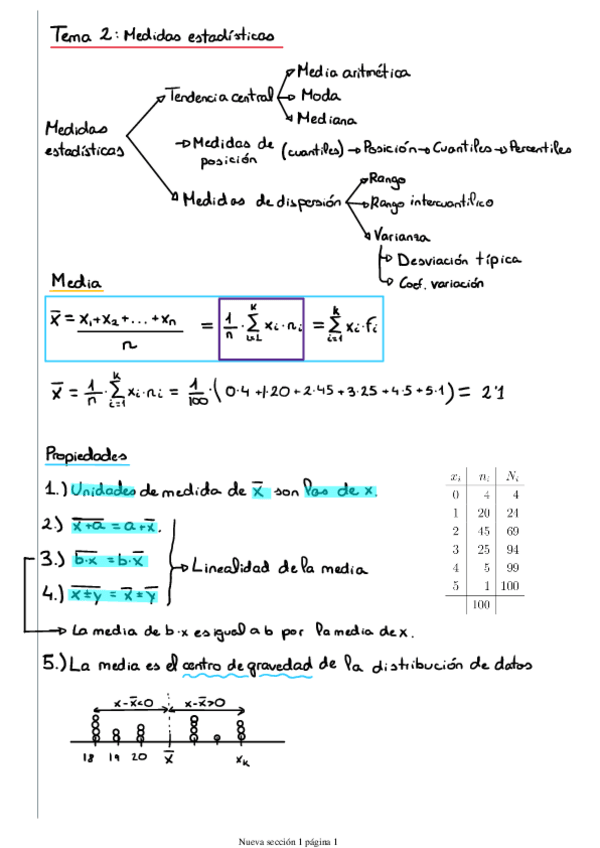 Tema 2: Medidas estadísticas
Medidas estadísticas
Tendencia central
Media aritmética
Moda
Mediana
→ Medidas de posición (cuantiles) → Posición → Cuantiles → Percentiles
Medidas de dispersión
Rango
Rango intercuantílico
Varianza
Desviación típica
Coef. variación
Media
x̄ = (x₁+x₂+...+xₙ)/n = 1/n · Σ(i=1, k) xᵢ·nᵢ = Σ(i=1, k) xᵢ·fᵢ
x̄ = 1/n · Σ(i=1, k) xᵢ·nᵢ = 1/100 · (0·4+1·20+2·45+3·25+4·5+5·1) = 2'1
Propiedades
1.) Unidades de medida de x̄ son las de x.
2.) x+a̅ = a+x̄.
3.) b·x̅ = b·x̄
4.) x±y̅ = x̄±ȳ
→ Linealidad de la media
→ La media de b·x es igual a b por la media de x.
xᵢ nᵢ Nᵢ
0 4 4
1 20 24
2 45 69
3 25 94
4 5 99
5 1 100
100
5.) La media es el centro de gravedad de la distribución de datos
x-x̄<0 x-x̄>0
18 19 20 x̄ xₖ
Nueva sección 1 página 1